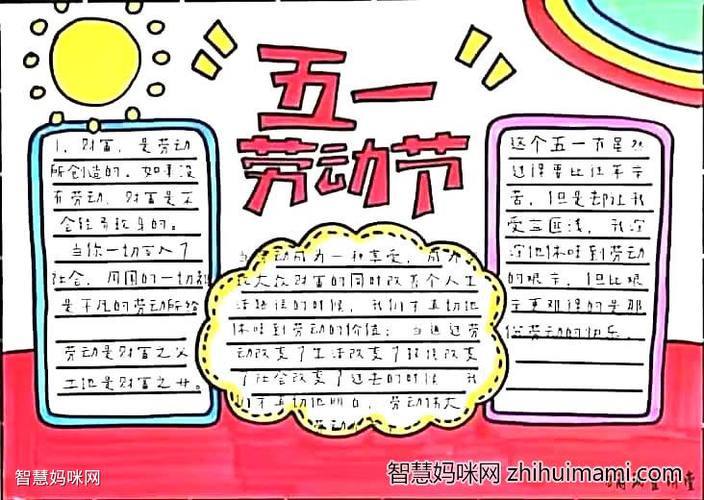 五一
劳动节
1、财富，是劳动
所创造的。如果没
有劳动，财富是不
会轻易致身的。
当你一切交入了
社会，周围的一切都
是平凡的劳动所给
劳动是财富之父
土地是财富之母。
动成为一种享受，成
大众财富的同时改善个人生
活路径的时候，我们才真切地
体味到劳动的价值；当通过劳
动改变了生活改变了环境改变
了社会改变了过去的时候，我
们才真切地明白，劳动伟大
这个五一节虽然
过得要比往年辛
苦，但是却让我
受益匪浅，我深
深地体味到劳动
的艰辛，但比艰
辛更难得的是那
份劳动的快乐。
智慧妈咪网
智慧妈咪网 zhihuimami.com